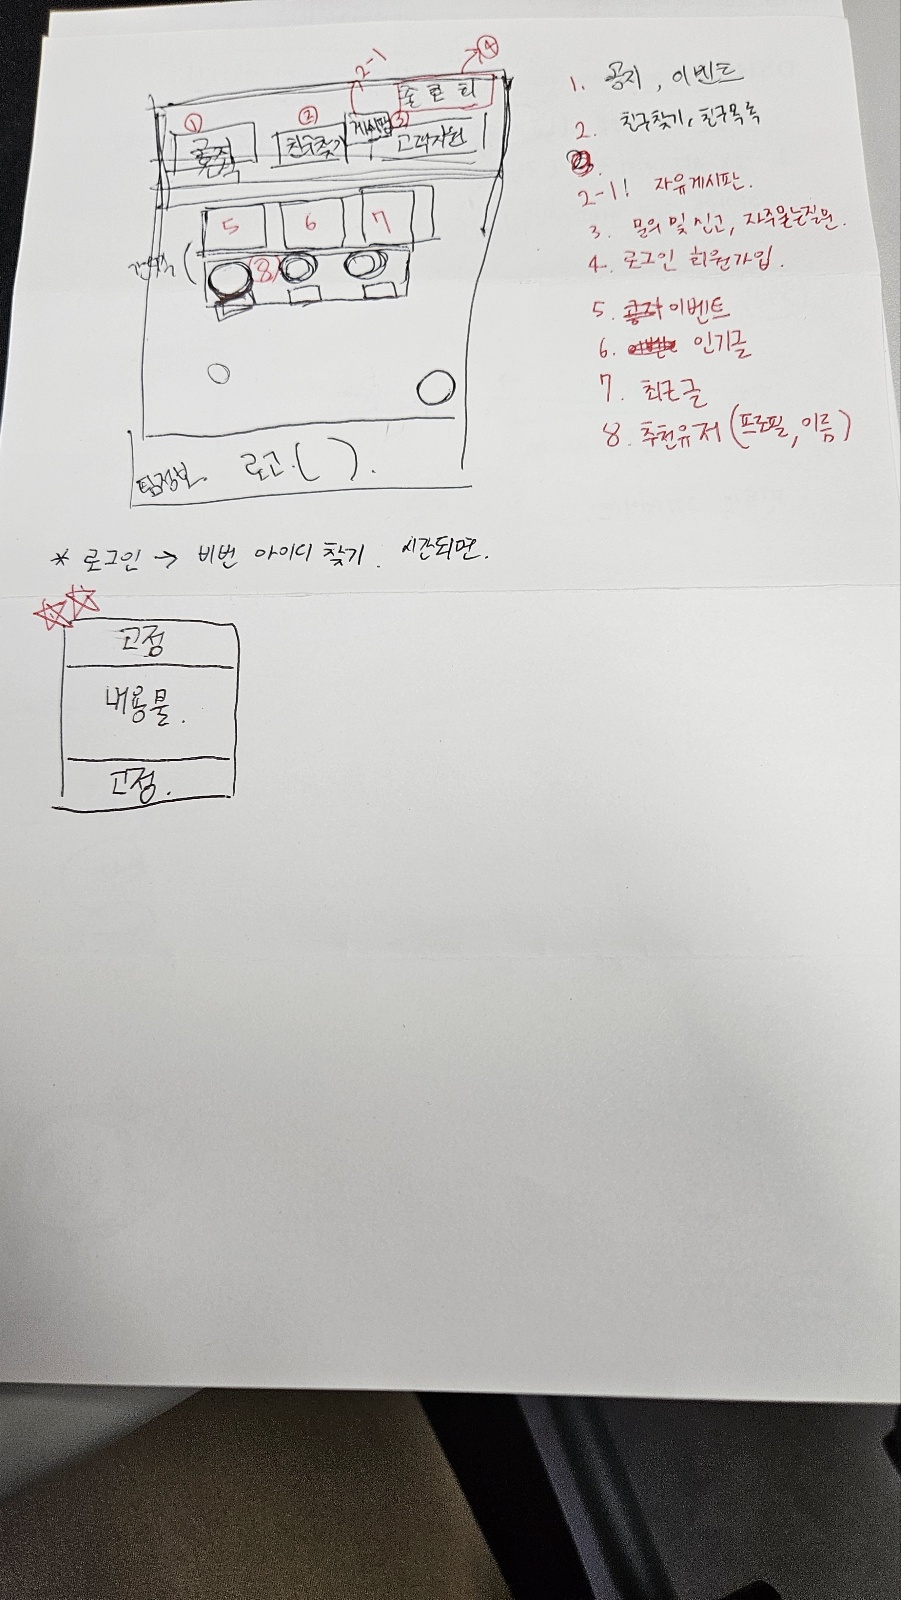 2-1
④
①
②
게시판
③
친구찾기
고객지원
5
6
7
8
팀정보. 로고( ).
1. 공지, 이벤트
2. 친구찾기, 친구목록
2-1! 자유게시판.
3. 문의 및 신고, 자주묻는질문.
4. 로그인 회원가입.
5. 이벤트
6. 인기글
7. 최근글
8. 추천유저 (프로필, 이름)
* 로그인 → 비번 아이디 찾기. 시간되면.
고정
내용물.
고정.